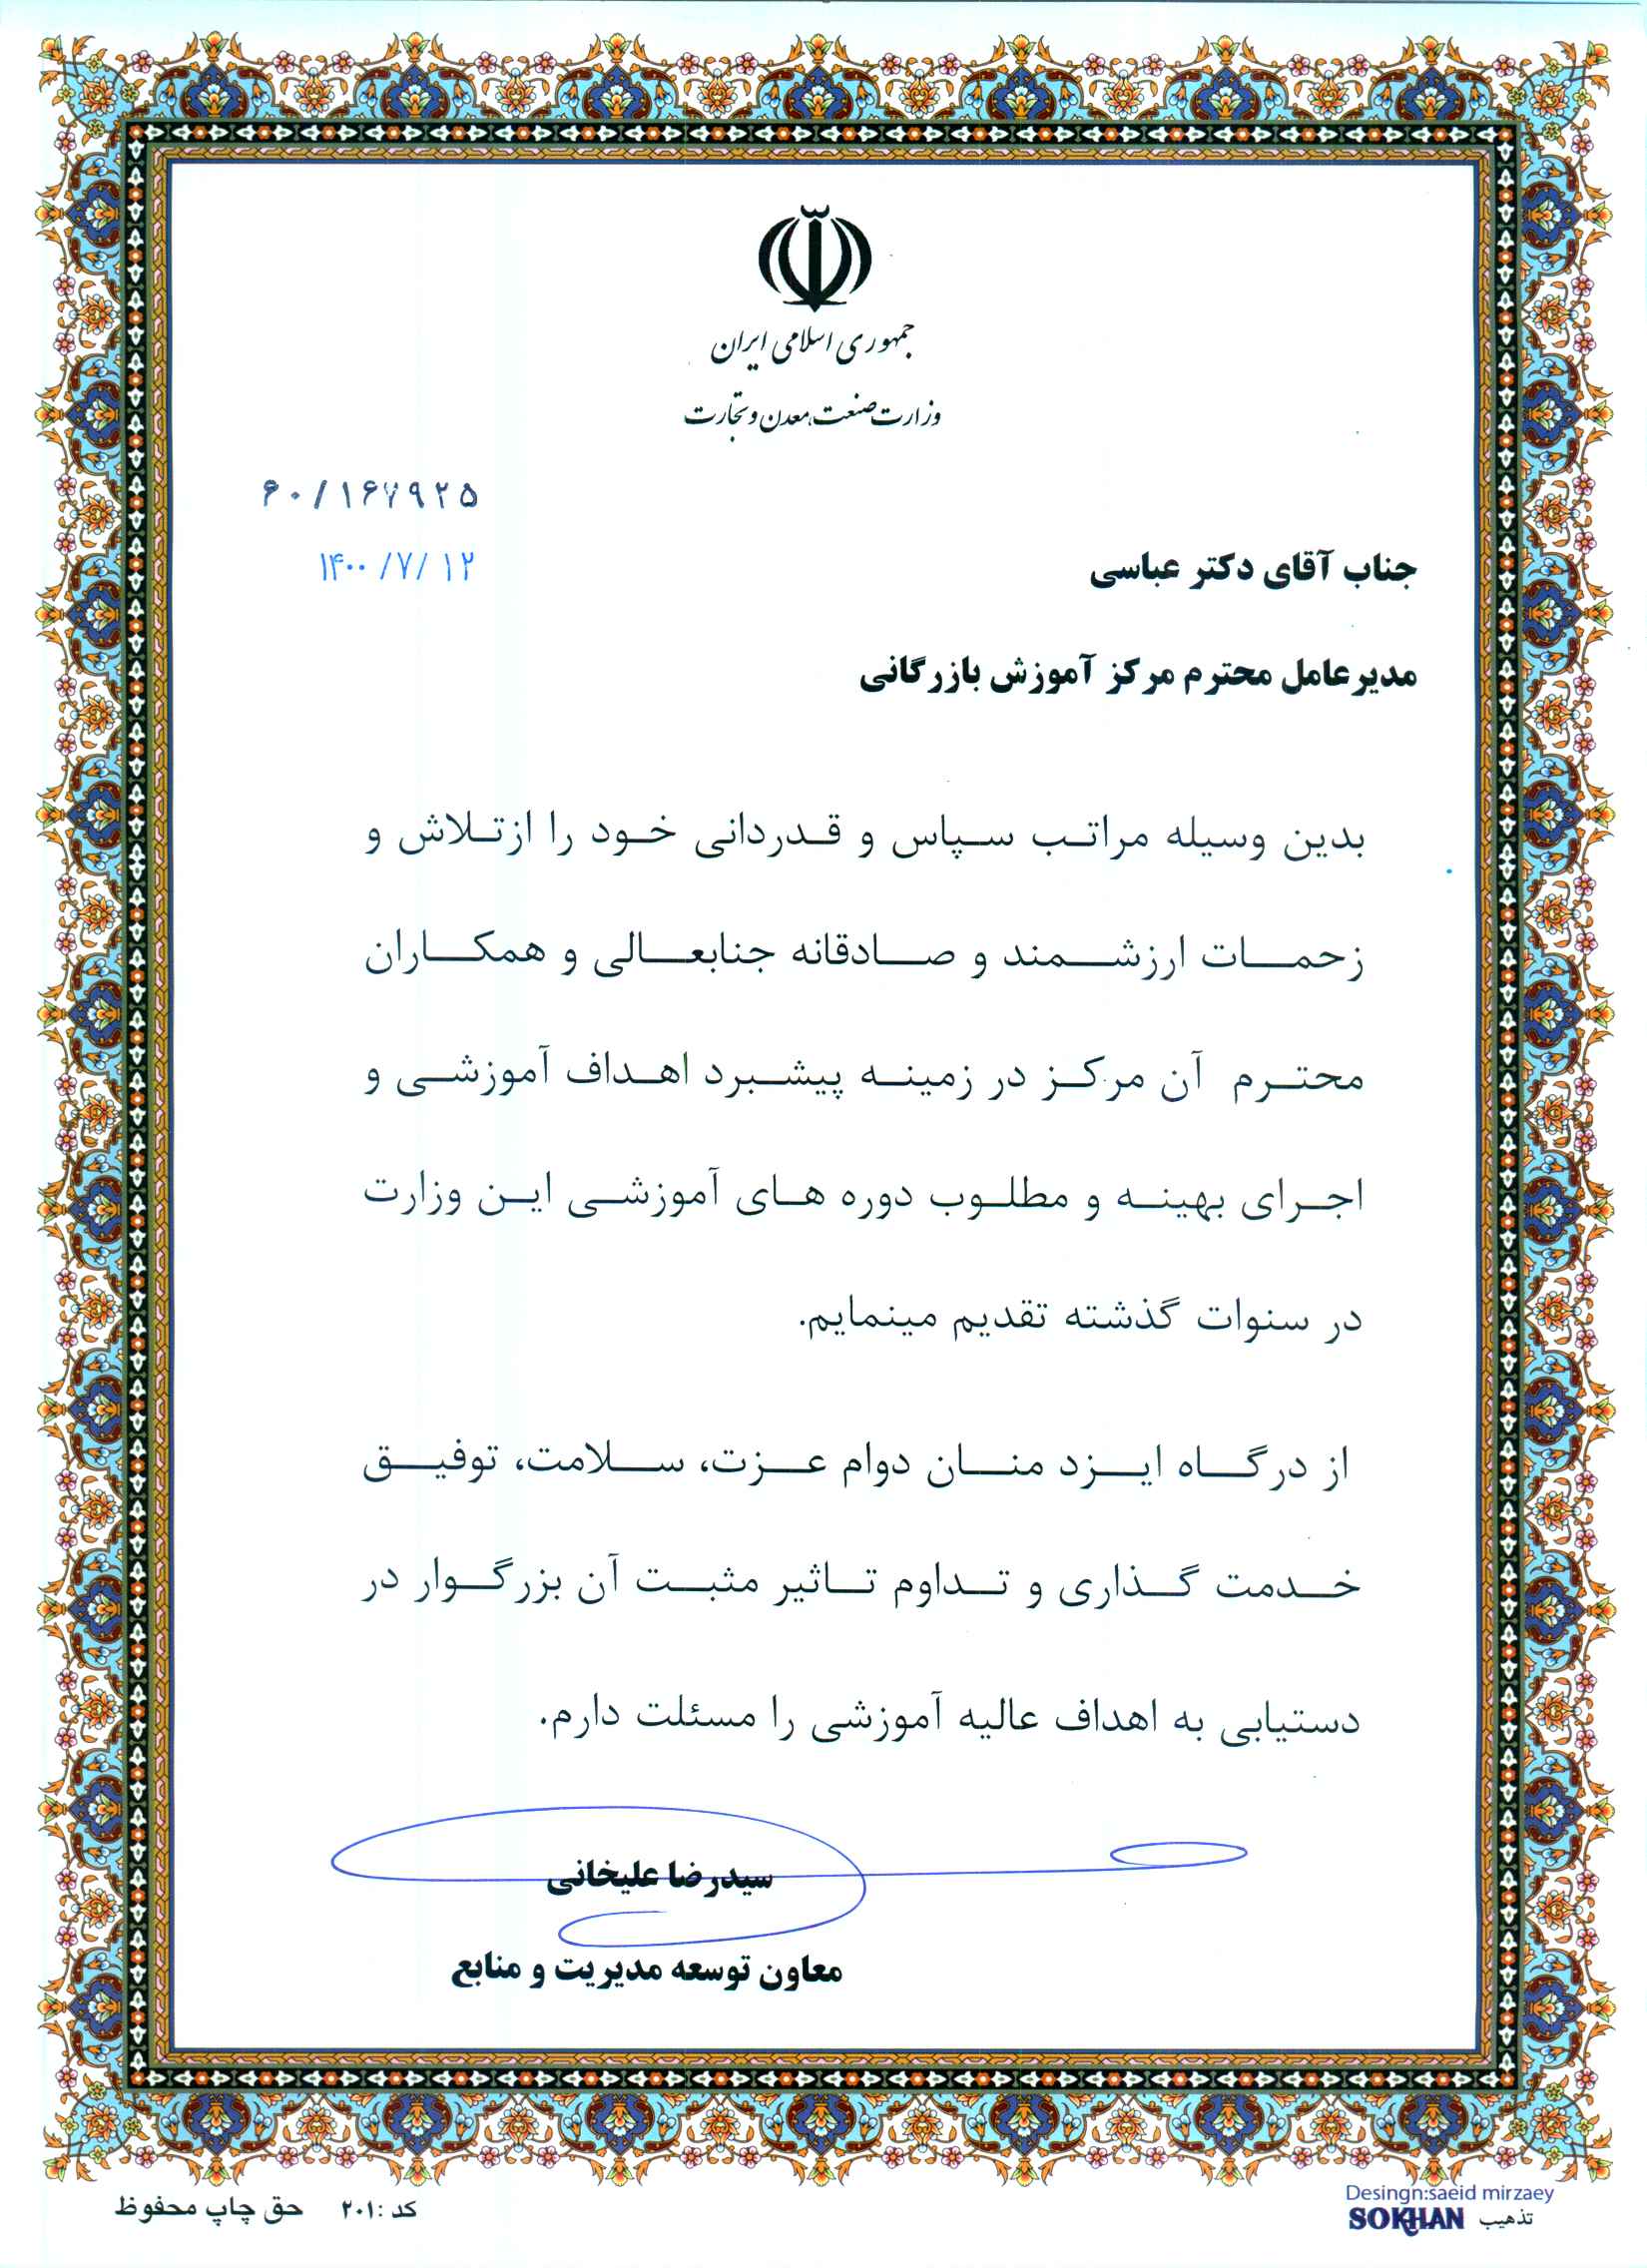 جمهوری اسلامی ایران
وزارت صنعت، معدن و تجارت
۶۰/۱۶۷۹۲۵
۱۴۰۰/۷/۱۲
جناب آقای دکتر عباسی
مدیرعامل محترم مرکز آموزش بازرگانی
بدین وسیله مراتب سپاس و قدردانی خود را ازتلاش و
زحمات ارزشمند و صادقانه جنابعالی و همکاران
محترم آن مرکز در زمینه پیشبرد اهداف آموزشی و
اجرای بهینه و مطلوب دوره های آموزشی این وزارت
در سنوات گذشته تقدیم مینمایم.
از درگاه ایزد منان دوام عزت، سلامت، توفیق
خدمت گذاری و تداوم تاثیر مثبت آن بزرگوار در
دستیابی به اهداف عالیه آموزشی را مسئلت دارم.
سیدرضا علیخانی
معاون توسعه مدیریت و منابع
Desingn:saeid mirzaey
تذهیب SOKHAN
کد :۲۰۱ حق چاپ محفوظ